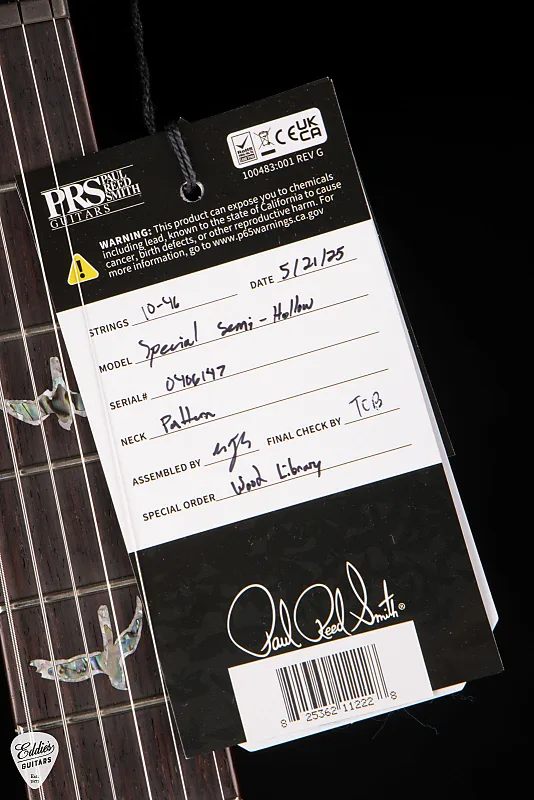 PRS PAUL REED SMITH
GUITARS
RoHS
CE UKCA
100483:001 REV G
WARNING: This product can expose you to chemicals
including lead, known to the state of California to cause
cancer, birth defects, or other reproductive harm. For
more information, go to www.p65warnings.ca.gov
STRINGS 10-46 DATE 5/21/25
MODEL Special Semi-Hollow
SERIAL# 0406147
NECK Pattern
ASSEMBLED BY FINAL CHECK BY TCB
SPECIAL ORDER Wood Library
Paul Reed Smith®
8 25362 11222 8
Eddie's
GUITARS